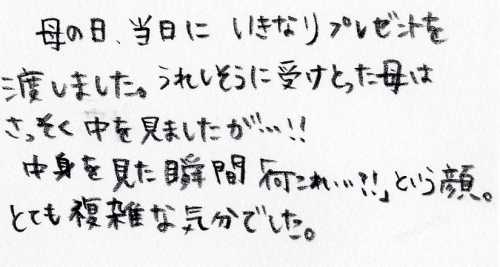 母の日、当日に いきなりプレゼントを
渡しました。うれしそうに受けとった母は
さっそく中を見ましたが…!!
中身を見た瞬間「何これ…?!」という顔。
とても複雑な気分でした。